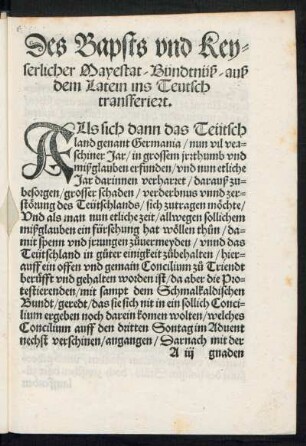 Des Bapsts vnd Key-
serlicher Mayestat-Bündtnüß-auß
dem Latein ins Teutsch
transferiert.
ALls sich dann das Teütsch
land genant Germania/ nun vil ver-
schiner Jar/ in grossem jrrthumb vnd
mißglauben erfunden/ vnd nun etliche
Jar darinnen verharret/ darauß zu-
besorgen/ grosser schaden/ verderbnus vnnd zer-
störung des Teütschlands/ sich zutragen möchte/
Vnd als man nun etliche zeit/ allwegen sollichem
mißglauben ein fürsehung hat wöllen thůn/ da-
mit spenn vnd jrzungen zůuermeyden/ vnnd das
Teütschland in güter einigkeit zůbehalten/ hier-
auff ein offen vnd gemain Concilium zů Triendt
berüfft vnd gehalten worden ist/ da aber die Pro-
testierenden/ mit sampt dem Schmalkaldischen
Bundt/ geredt/ das sie sich nit in ein sollich Conci-
lium ergeben noch darein komen wolten/ welches
Concilium auff den dritten Sontag im Aduent
nechst verschinen/ angangen/ Darnach mit der
A iij gnaden